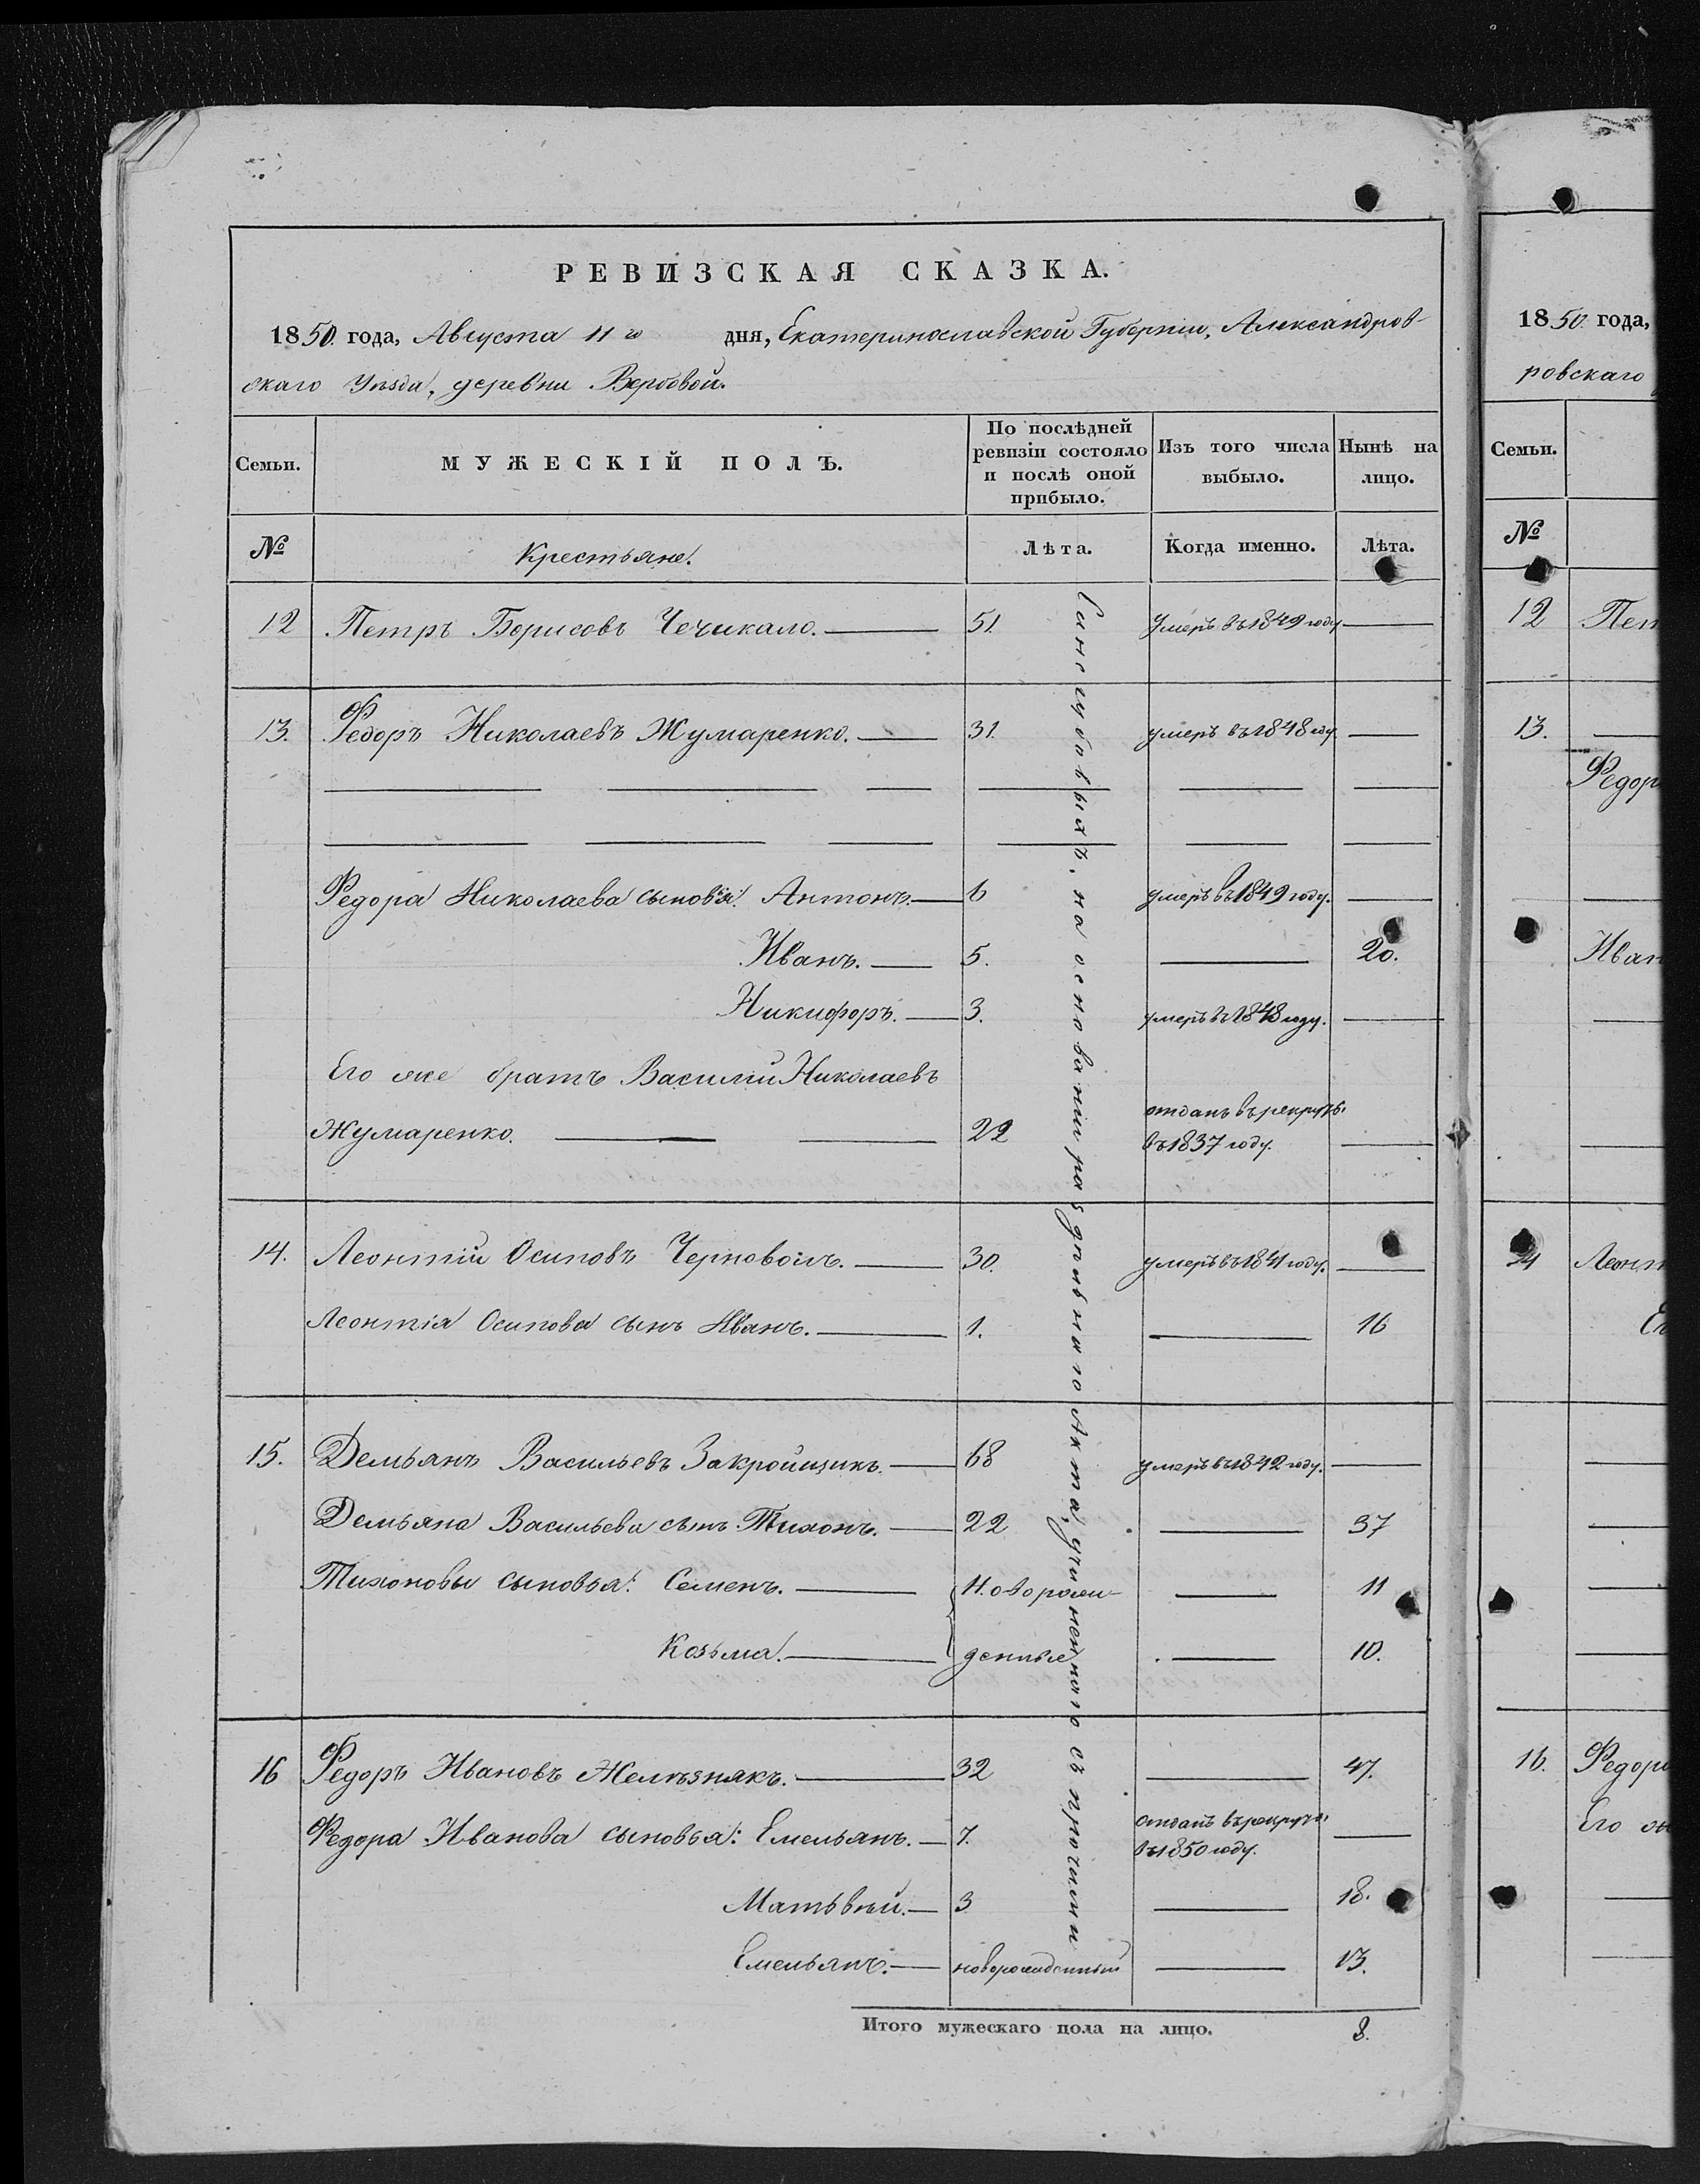 РЕВИЗСКАЯ СКАЗКА.
1850 года, Августа 11 го дня, Екатеринославской Губерніи, Александров-
скаго Уѣзда, деревни Вербовой.
Семьи. МУЖЕСКІЙ ПОЛЪ. По послѣдней ревизіи состояло и послѣ оной прибыло. Изъ того числа выбыло. Нынѣ на лицо.
№ Крестьяне. Лѣта. Когда именно. Лѣта.
12 Петръ Борисовъ Чечикало. 51. Умеръ въ 1849 году
13. Федоръ Николаевъ Жумаренко. 31. умеръ въ 1848 году
Федора Николаева сыновья: Антонъ. 6 умеръ въ 1849 году.
Иванъ. 5. 20.
Никифоръ. 3. умеръ въ 1848 году.
Его же братъ Василий Николаевъ
Жумаренко. 22 отданъ въ рекруты въ 1837 году.
14. Леонтій Осиповъ Черноволъ. 30. умеръ въ 1841 году.
Леонтія Осипова сынъ Иванъ. 1. 16
15. Демьянъ Васильевъ Закройщикъ. 68 умеръ въ 1842 году.
Демьяна Васильева сынъ Тихонъ. 22 37
Тихоновы сыновья: Семенъ. Новорож- 11
Козьма. денные 10.
16 Федоръ Ивановъ Желѣзнякъ. 32 47.
Федора Иванова сыновья: Емельянъ. 7. отданъ въ рекруты въ 1850 году.
Матьвѣй. 3 18.
Емельянъ. новорожденный 13.
Итого мужескаго пола на лицо. 8.
на основаніи раздѣльнаго Акта, учиненнаго съ прочими
1850 года,
ровскаго
Семьи.
№
12 Пет
13.
Федор
Иван
14 Леонт
16. Федор
Его